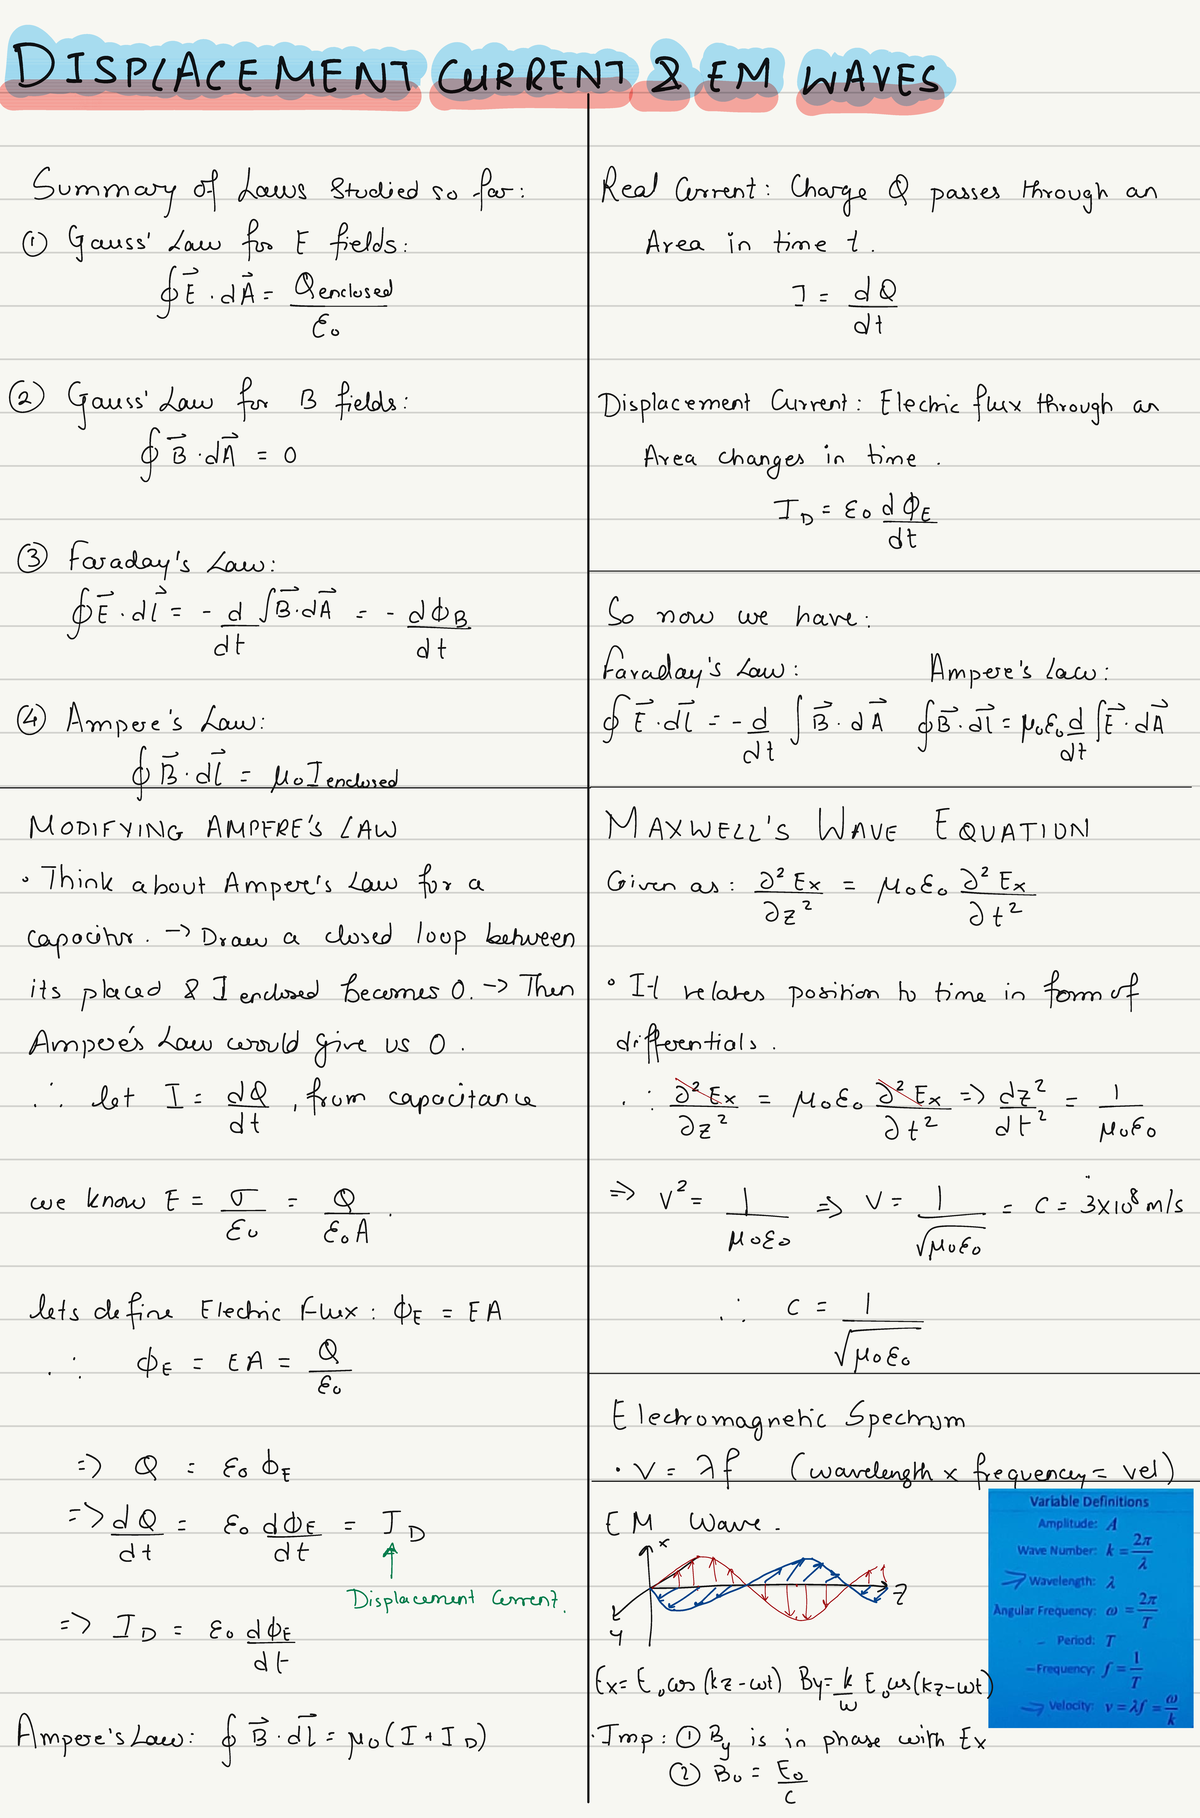 DISPLACEMENT CURRENT & EM WAVES
Summary of Laws Studied so far:
① Gauss' Law for E fields:
∮E⃗·dA⃗ = Qenclosed/ε₀
② Gauss' Law for B fields:
∮B⃗·dA⃗ = 0
③ Faraday's Law:
∮E⃗·dl⃗ = - d/dt ∫B⃗·dA⃗ = - dϕB/dt
④ Ampere's Law:
∮B⃗·dl⃗ = μ₀Ienclosed
MODIFYING AMPERE'S LAW
• Think about Ampere's Law for a
capacitor. → Draw a closed loop between
its placed & I enclosed becomes 0. → Then
Ampere's Law would give us 0.
∴ let I = dQ/dt , from capacitance
we know E = σ/ε₀ = Q/ε₀A .
lets define Electric Flux: ϕE = EA
∴ ϕE = EA = Q/ε₀
=> Q = ε₀ ϕE
=> dQ/dt = ε₀ dϕE/dt = ID
Displacement Current.
=> ID = ε₀ dϕE/dt
Ampere's Law: ∮B⃗·dl⃗ = μ₀(I + ID)
Real Current: Charge Q passes through an
Area in time t.
I = dQ/dt
Displacement Current: Electric flux through an
Area changes in time.
ID = ε₀ dϕE/dt
So now we have:
Faraday's Law: Ampere's Law:
∮E⃗·dl⃗ = - d/dt ∫B⃗·dA⃗ ∮B⃗·dl⃗ = μ₀ε₀ d/dt ∫E⃗·dA⃗
MAXWELL'S WAVE EQUATION
Given as: ∂²Ex/∂z² = μ₀ε₀ ∂²Ex/∂t²
• It relates position to time in form of
differentials.
∴ ∂²Ex/∂z² = μ₀ε₀ ∂²Ex/∂t² => dz²/dt² = 1/μ₀ε₀
=> v² = 1/μ₀ε₀ => v = 1/√μ₀ε₀ = c = 3x10⁸ m/s
∴ c = 1/√μ₀ε₀
Electromagnetic Spectrum
• v = λf (wavelength x frequency = vel)
EM Wave.
x
z
y
Ex = E₀cos(kz-wt) By = k/w E₀cos(kz-wt)
• Imp: ① By is in phase with Ex
② B₀ = E₀/c
Variable Definitions
Amplitude: A
Wave Number: k = 2π/λ
→ Wavelength: λ
Angular Frequency: ω = 2π/T
- Period: T
- Frequency: f = 1/T
→ Velocity: v = λf = ω/k